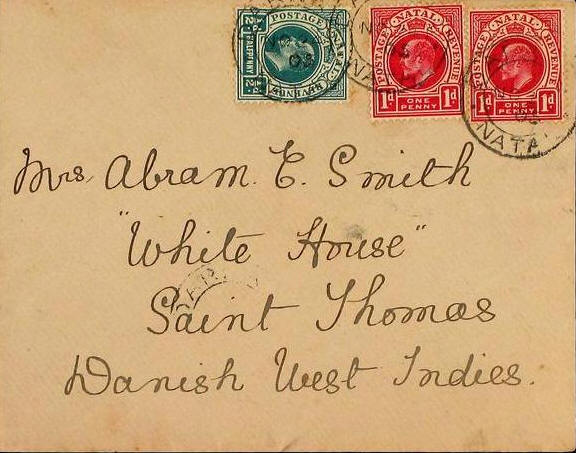 POSTAGE NATAL REVENUE
½d HALFPENNY ½d
POSTAGE NATAL REVENUE
1d ONE PENNY 1d
POSTAGE NATAL REVENUE
1d ONE PENNY 1d
NATAL
Mrs Abram. E. Smith
"White House"
Saint Thomas
Danish West Indies.